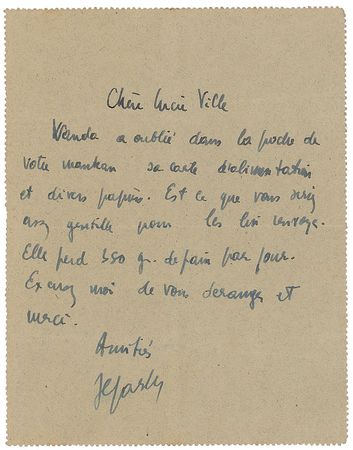 Chère Lucie Ville
Wanda a oublié dans la poche de
votre manteau sa carte d'alimentation
et divers papiers. Est ce que vous seriez
assez gentille pour les lui renvoyer.
Elle perd 350 gr. de pain par jour.
Excusez moi de vous deranger et
merci.
Amitiés